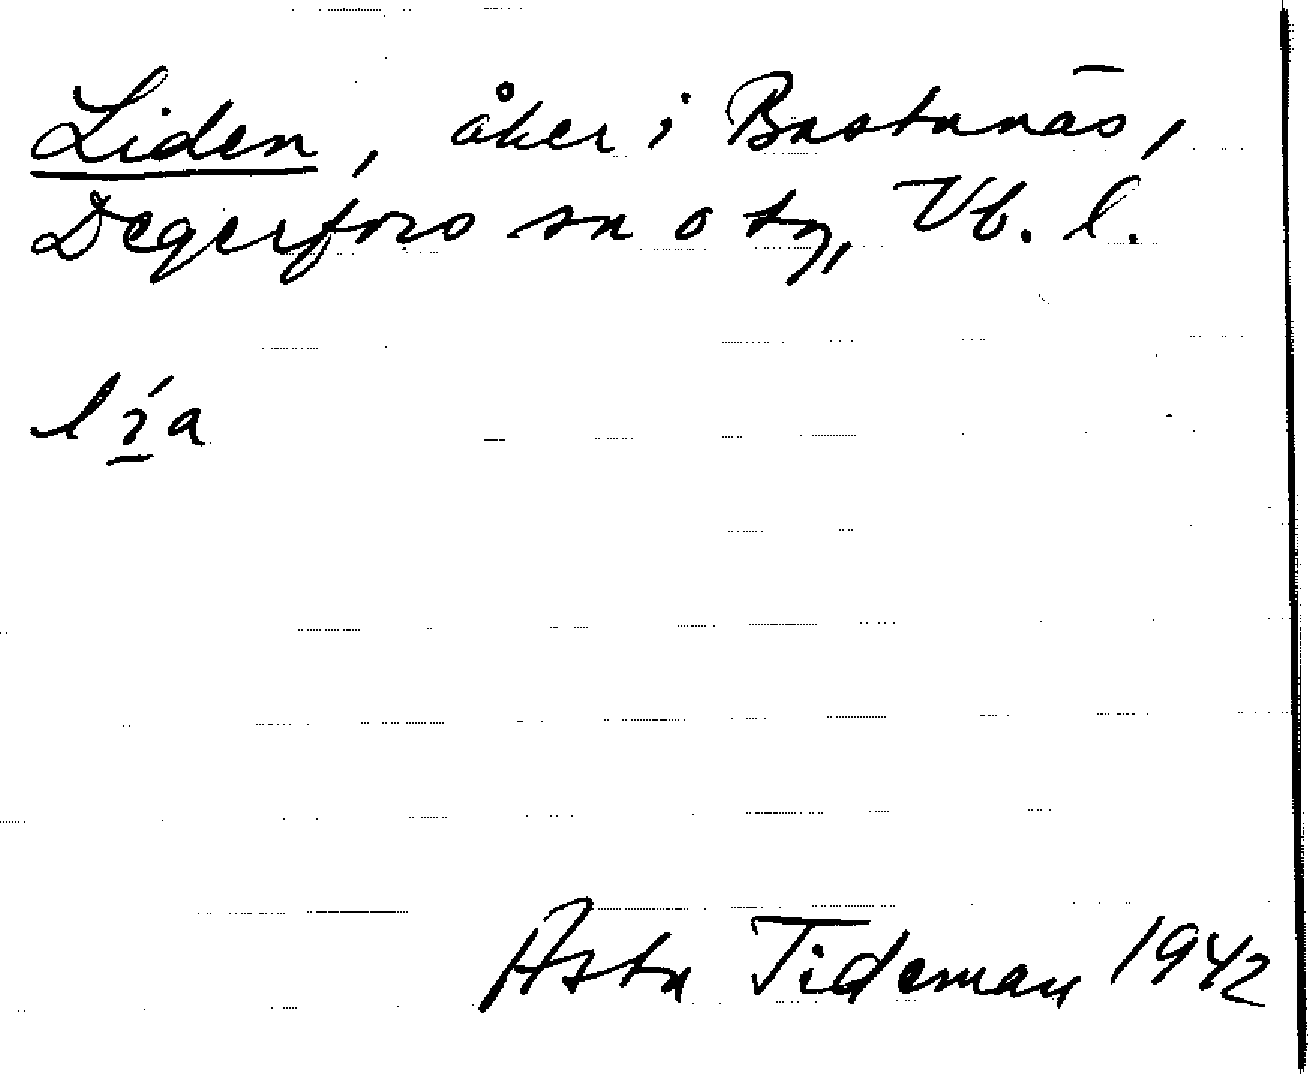 Liden, åker i Bastunäs,
Degerfors sn o tg, Vb. l.
lí̱a
Asta Tideman 1942